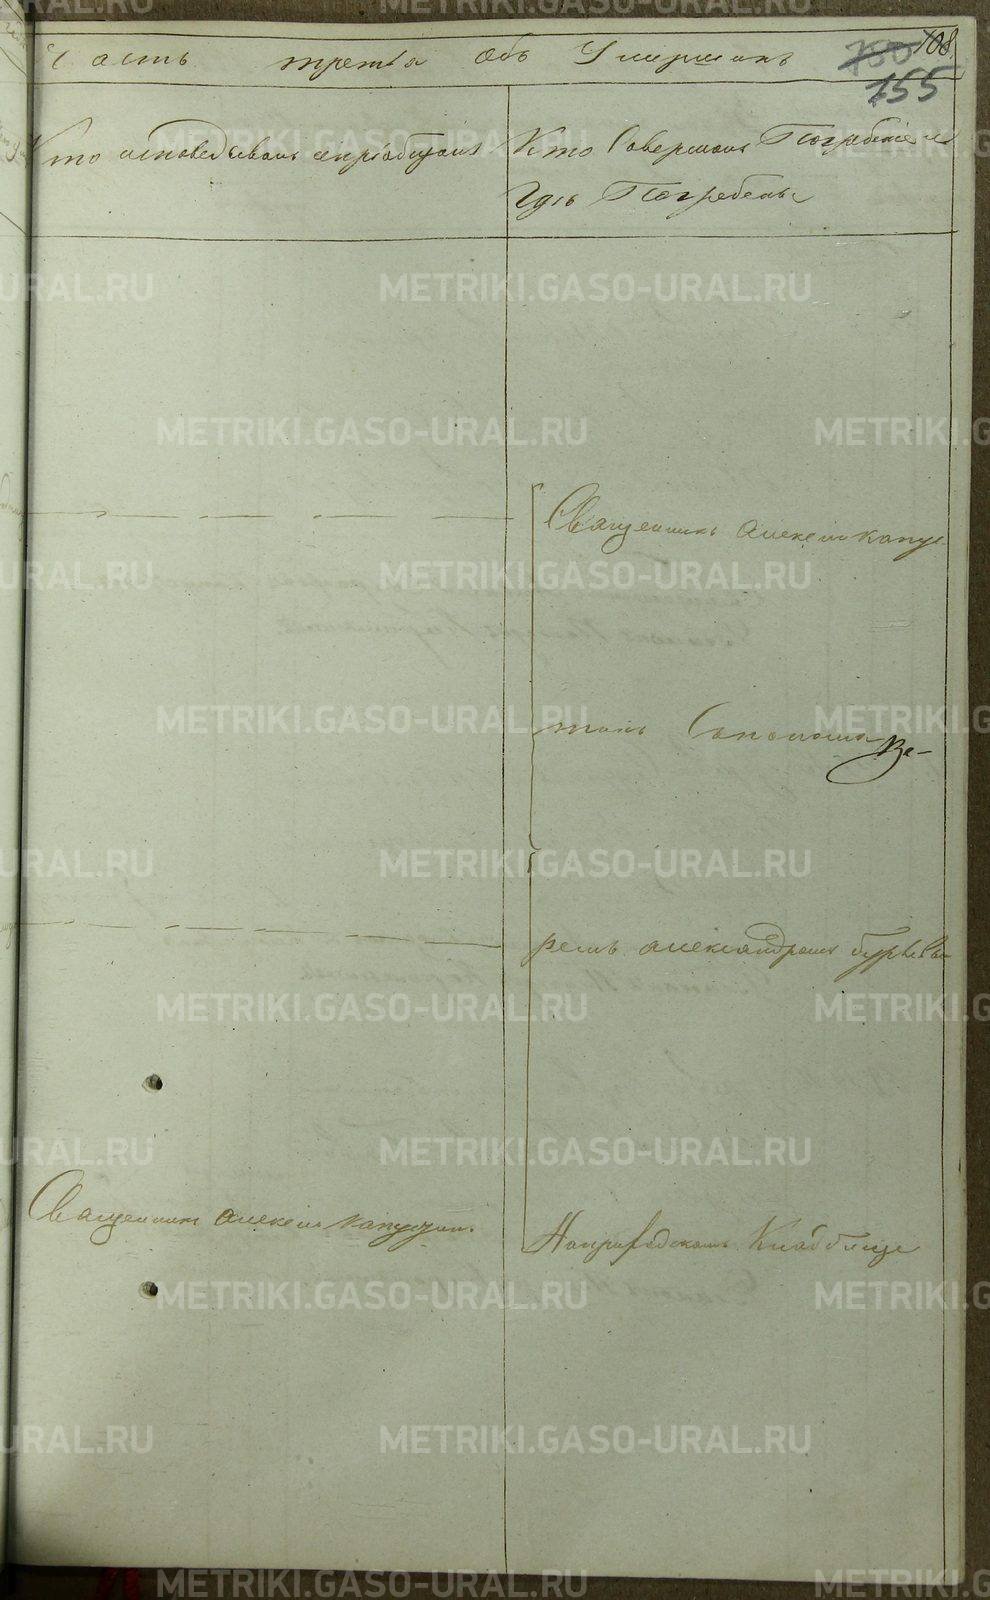 Часть третья объ Умершихъ
108
780
155
Кто исповедывалъ и приобщалъ
Кто Совершалъ Погребение и
где Погребены
Священникъ Алексей Капус-
тинъ
ремъ Александромъ
Священникъ Алексей Капустинъ.
На приходскомъ Кладбище
METRIKI.GASO-URAL.RU